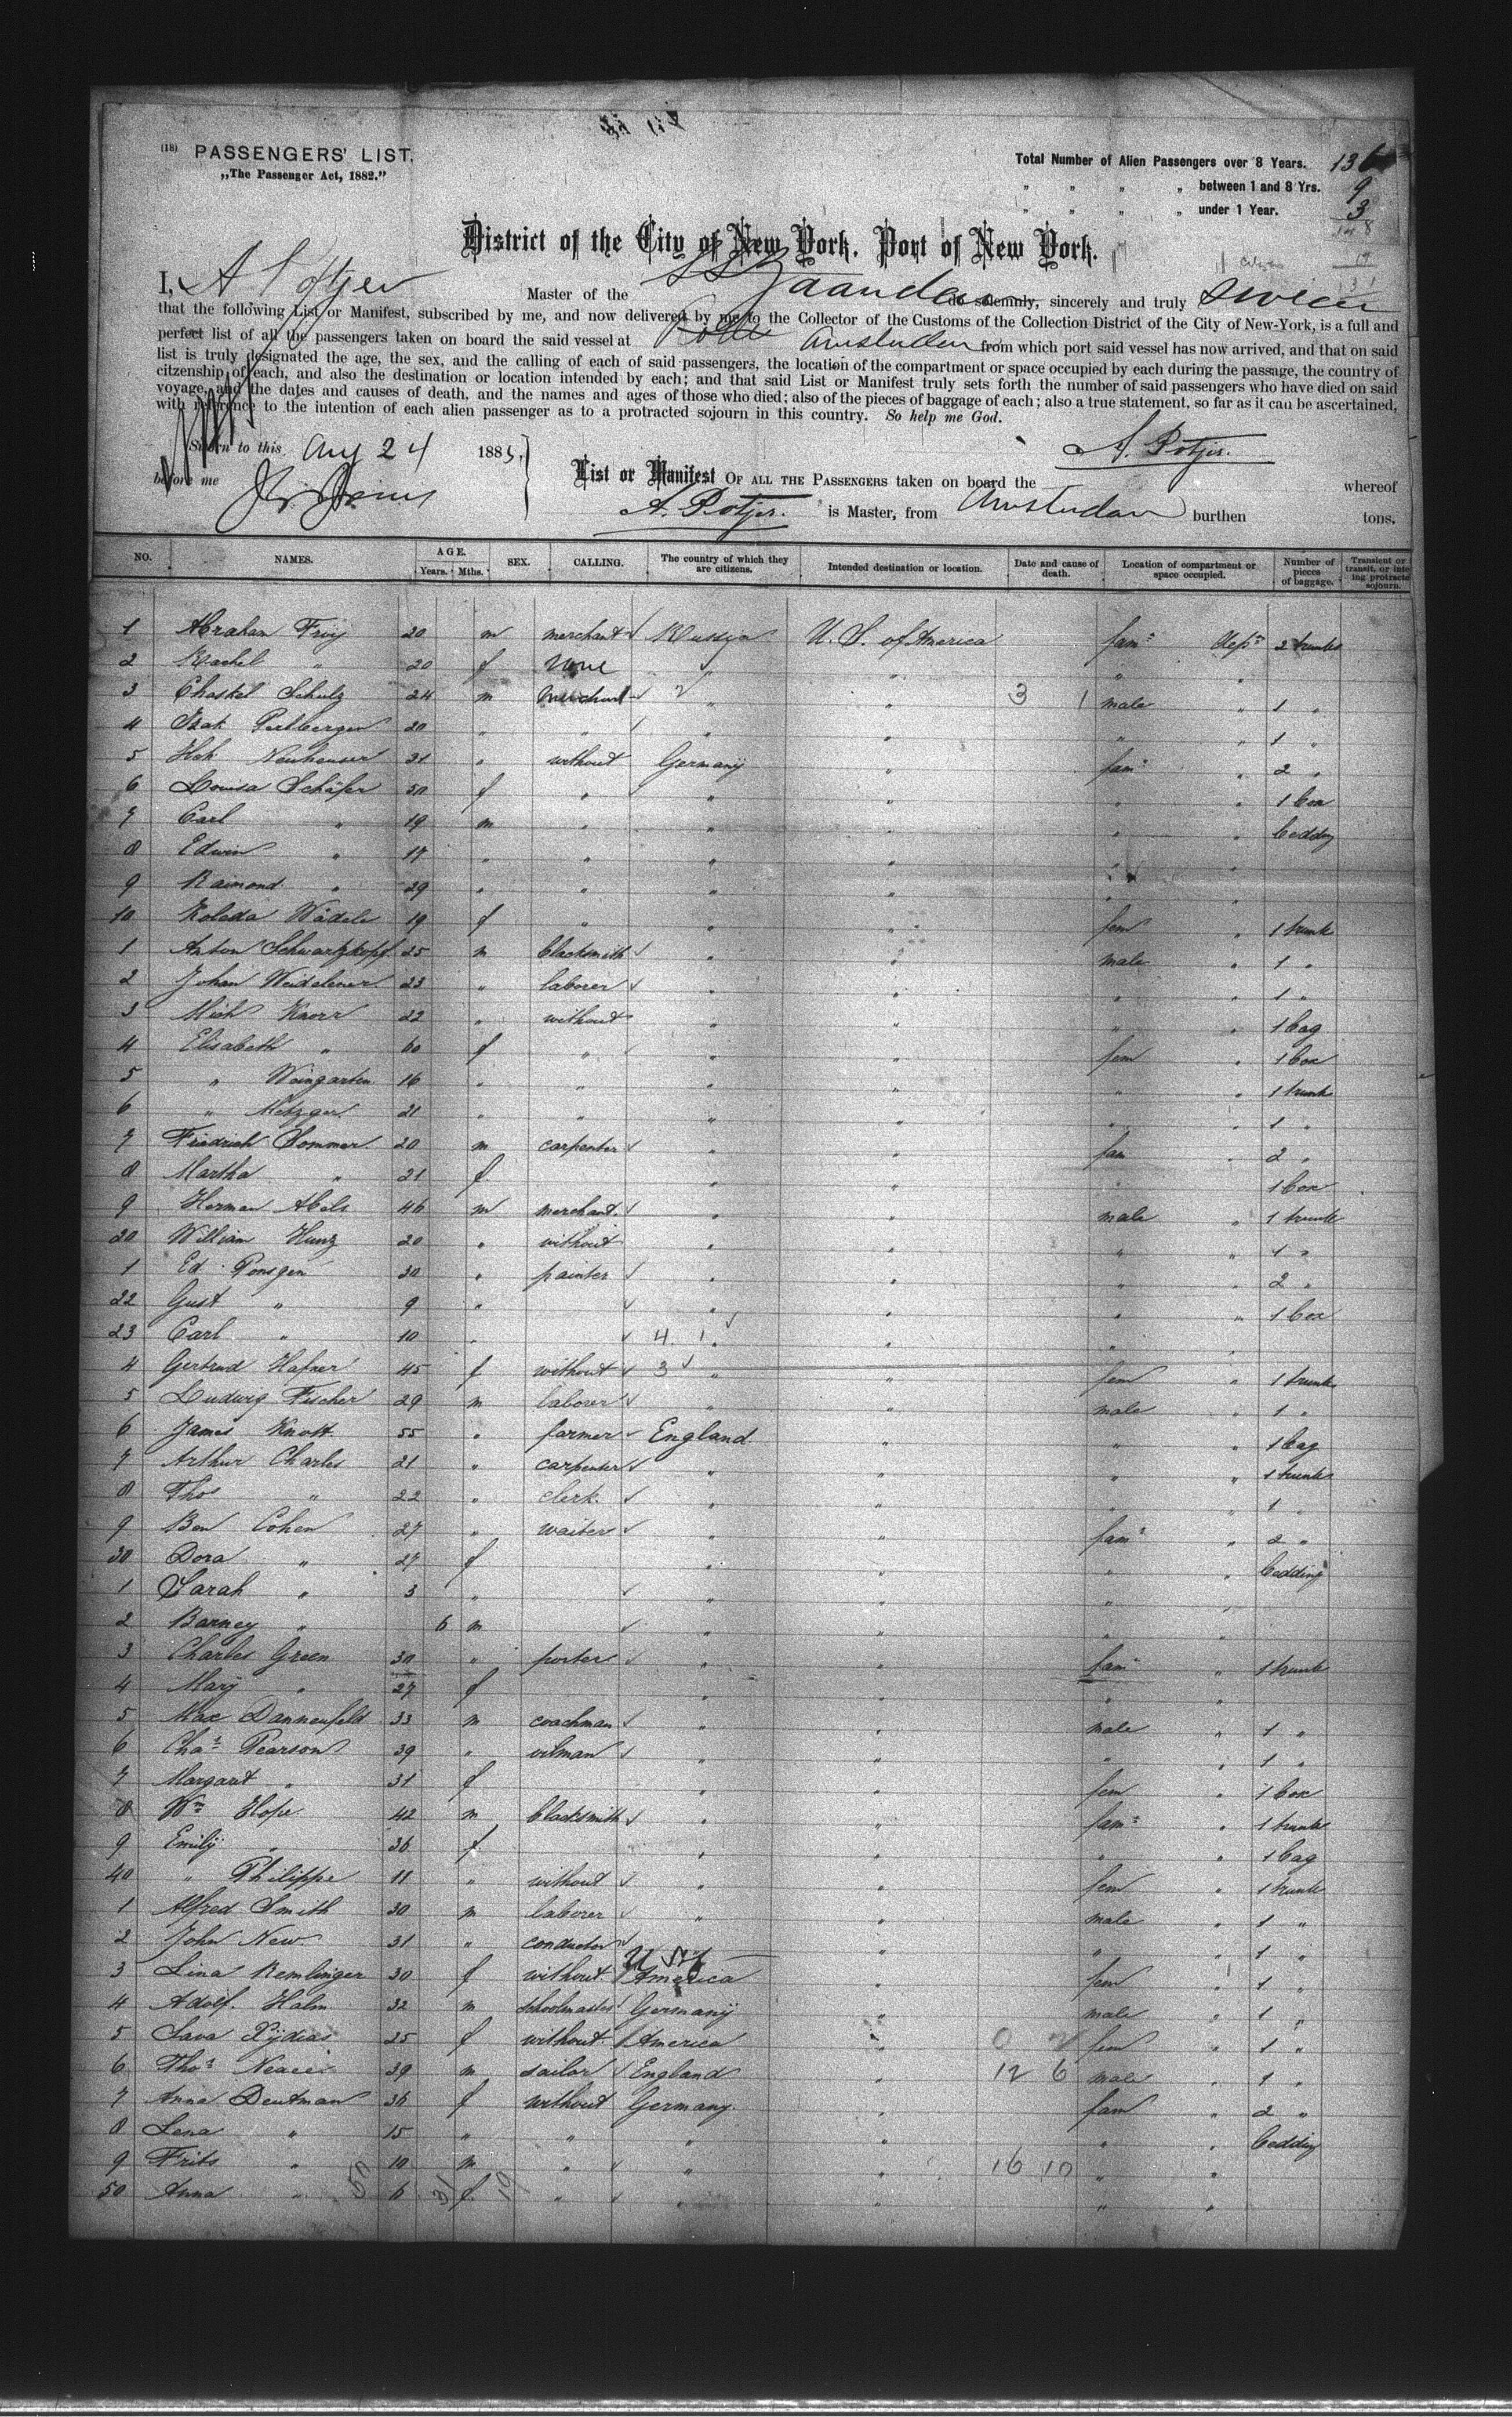 (18) PASSENGERS' LIST.
„The Passenger Act, 1882."
Total Number of Alien Passengers over 8 Years. 136
„ „ „ „ between 1 and 8 Yrs. 9
„ „ „ „ under 1 Year. 3
District of the City of New York. Port of New York.
I, A Potjer Master of the SS Zaandam do solemnly, sincerely and truly swear
that the following List or Manifest, subscribed by me, and now delivered by me to the Collector of the Customs of the Collection District of the City of New-York, is a full and
perfect list of all the passengers taken on board the said vessel at Amsterdam from which port said vessel has now arrived, and that on said
list is truly designated the age, the sex, and the calling of each of said passengers, the location of the compartment or space occupied by each during the passage, the country of
citzenship of each, and also the destination or location intended by each; and that said List or Manifest truly sets forth the number of said passengers who have died on said
voyage, and the dates and causes of death, and the names and ages of those who died; also of the pieces of baggage of each; also a true statement, so far as it can be ascertained,
with reference to the intention of each alien passenger as to a protracted sojourn in this country. So help me God.
Sworn to this Aug 24 1885. A. Potjer.
before me
List or Manifest OF ALL THE PASSENGERS taken on board the whereof
A. Potjer. is Master, from Amsterdam burthen tons.
NO. NAMES. AGE. Years. Mths. SEX. CALLING. The country of which they are citizens. Intended destination or location. Date and cause of death. Location of compartment or space occupied. Number of pieces of baggage. Transient or transit, or inte ing protracte sojourn.
1 Abraham 20 m merchant Russya U. S. of America fam: dep: 2 trunks
2 Rachel „ 20 f none „ „ „ „
3 Chaskel Schulz 24 m merchant „ „ 3 1 male „ 1 „
4 Isak Perlberger 20 „ „ „ „ „ „ 1 „
5 Neuhauser 31 „ without Germany „ fam: „ 2 „
6 Louisa Schäfer 50 f „ „ „ „ „ 1 box
7 Carl „ 19 m „ „ „ „ „ bedding
8 Edwin „ 17 „ „ „ „ „ „
9 Raimond „ 29 „ „ „ „ „ „
10 Wädele 19 f „ „ „ fem „ 1 trunk
1 Anton Schwartzkopf 25 m blacksmith „ „ male „ 1 „
2 Johan Weidelener 23 „ laborer „ „ „ „ 1 „
3 Mich Knorr 22 „ without „ „ „ „ 1 bag
4 Elisabeth „ 60 f „ „ „ fem „ 1 box
5 „ Weingarten 16 „ „ „ „ „ „ 1 trunk
6 „ Metzger 21 „ „ „ „ „ „ 1 „
7 Friedrich Sommer 20 m carpenter „ „ fam „ 2 „
8 Martha „ 21 f „ „ „ 1 box
9 Herman Abels 46 m merchant. „ „ male „ 1 trunk
20 William Kunz 20 „ without „ „ „ „ 1 „
1 Ed. Ponsgen 30 „ painter „ „ „ „ 2 „
22 Gust „ 9 „ „ „ „ „ 1 box
23 Carl „ 10 „ 4 1 „ „ „ „
4 Gertrud Hafner 45 f without 3 „ „ fem „ 1 trunk
5 Ludwig Fischer 29 m laborer „ „ male „ 1 „
6 James Knott 55 „ farmer England „ „ „ 1 bag
7 Arthur Charles 21 „ carpenter „ „ „ „ 1 trunk
8 Thos „ 22 „ clerk. „ „ „ „ 1
9 Ben Cohen 27 „ waiter „ „ fam: „ 2 „
30 Dora „ 27 f „ „ „ „ bedding
1 Sarah „ 3 „ „ „ „ „
2 Barney „ 6 m „ „ „ „
3 Charles Green 30 „ porter „ „ fam: „ 1 trunk
4 Mary „ 27 f „ „ „ „
5 Max Dannenfeld 33 m coachman „ „ male „ 1 „
6 Chas: Pearson 39 „ oilman „ „ „ „ 1 „
7 Margaret „ 31 f „ „ fem „ 1 box
8 Wm Hope 42 m blacksmith „ „ fam: „ 1 trunk
9 Emily „ 36 f „ „ „ „ 1 bag
40 „ Philippe 11 „ without „ „ fem „ 1 trunk
1 Alfred Smith 30 m laborer „ „ male „ 1 „
2 John New 31 „ conductor „ „ „ 1 „
3 Lina Remlinger 30 f without America „ fem „ 1 „
4 Adolf. Halm 32 m schoolmaster Germany „ male „ 1 „
5 25 f without America „ 0 fem „ 1 „
6 Thos 39 m sailor England „ 12 6 male „ 1 „
7 Anna Deutman 36 f without Germany. „ fam „ 2 „
8 Lena „ 15 „ „ „ „ „ „ bedding
9 Frits „ 10 m „ „ „ 16 10 „ „
50 Anna „ 50 6 31 f. 19 „ „ „ „ „